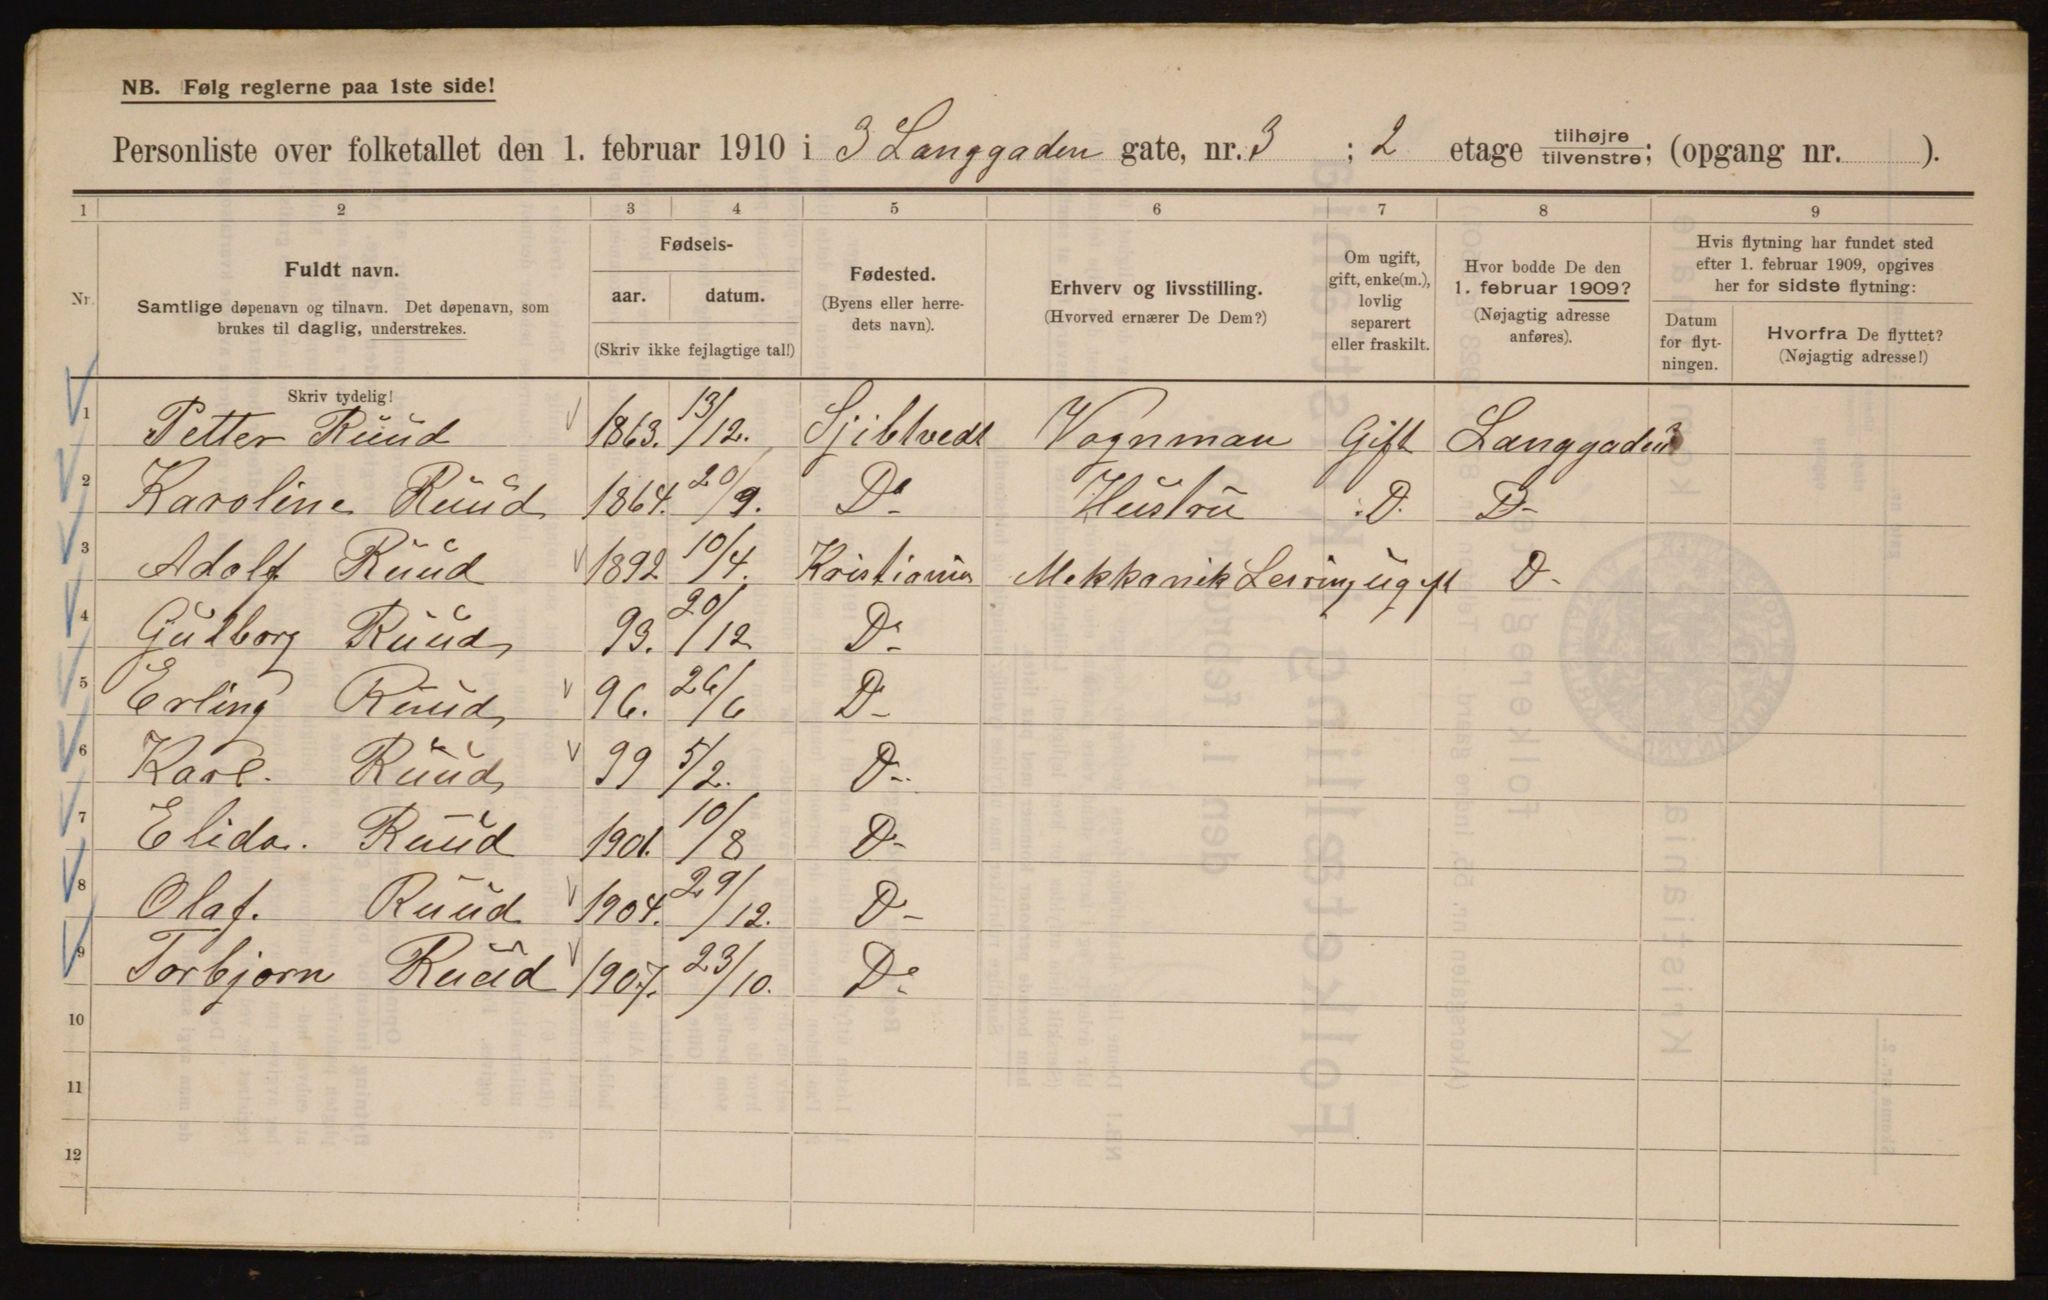 NB. Følg reglerne paa 1ste side!
Personliste over folketallet den 1. februar 1910 i 3 Langgaden gate, nr. 3 ; 2 etage tilhøjre/tilvenstre; (opgang nr. ).
1 2 3 4 5 6 7 8 9
Nr.
Fuldt navn.
Samtlige døpenavn og tilnavn. Det døpenavn, som
brukes til daglig, understrekes.
Skriv tydelig!
Fødsels-
aar. datum.
(Skriv ikke fejlagtige tal!)
Fødested.
(Byens eller herre-
dets navn).
Erhverv og livsstilling.
(Hvorved ernærer De Dem?)
Om ugift,
gift, enke(m.),
lovlig
separert
eller fraskilt.
Hvor bodde De den
1. februar 1909?
(Nøjagtig adresse
anføres).
Hvis flytning har fundet sted
efter 1. februar 1909, opgives
her for sidste flytning:
Datum
for flyt-
ningen.
Hvorfra De flyttet?
(Nøjagtig adresse!)
1 Petter Ruud 1863. 13/12. Vognman Gift Langgaden 3
2 Karoline Ruud 1864. 20/9. Do Hustru D. D-
3 Adolf Ruud 1892 10/4. Kristiania Mekkanik ugift D-
4 Gudborg Ruud 93. 20/12 Do-
5 Erling Ruud 96. 26/6 D-
6 Karl. Ruud 99 5/2. D-
7 Elida. Ruud 1901. 10/8 D-
8 Olaf. Ruud 1904. 29/12. D-
9 Torbjorn Ruud 1907. 23/10. Do-
10
11
12